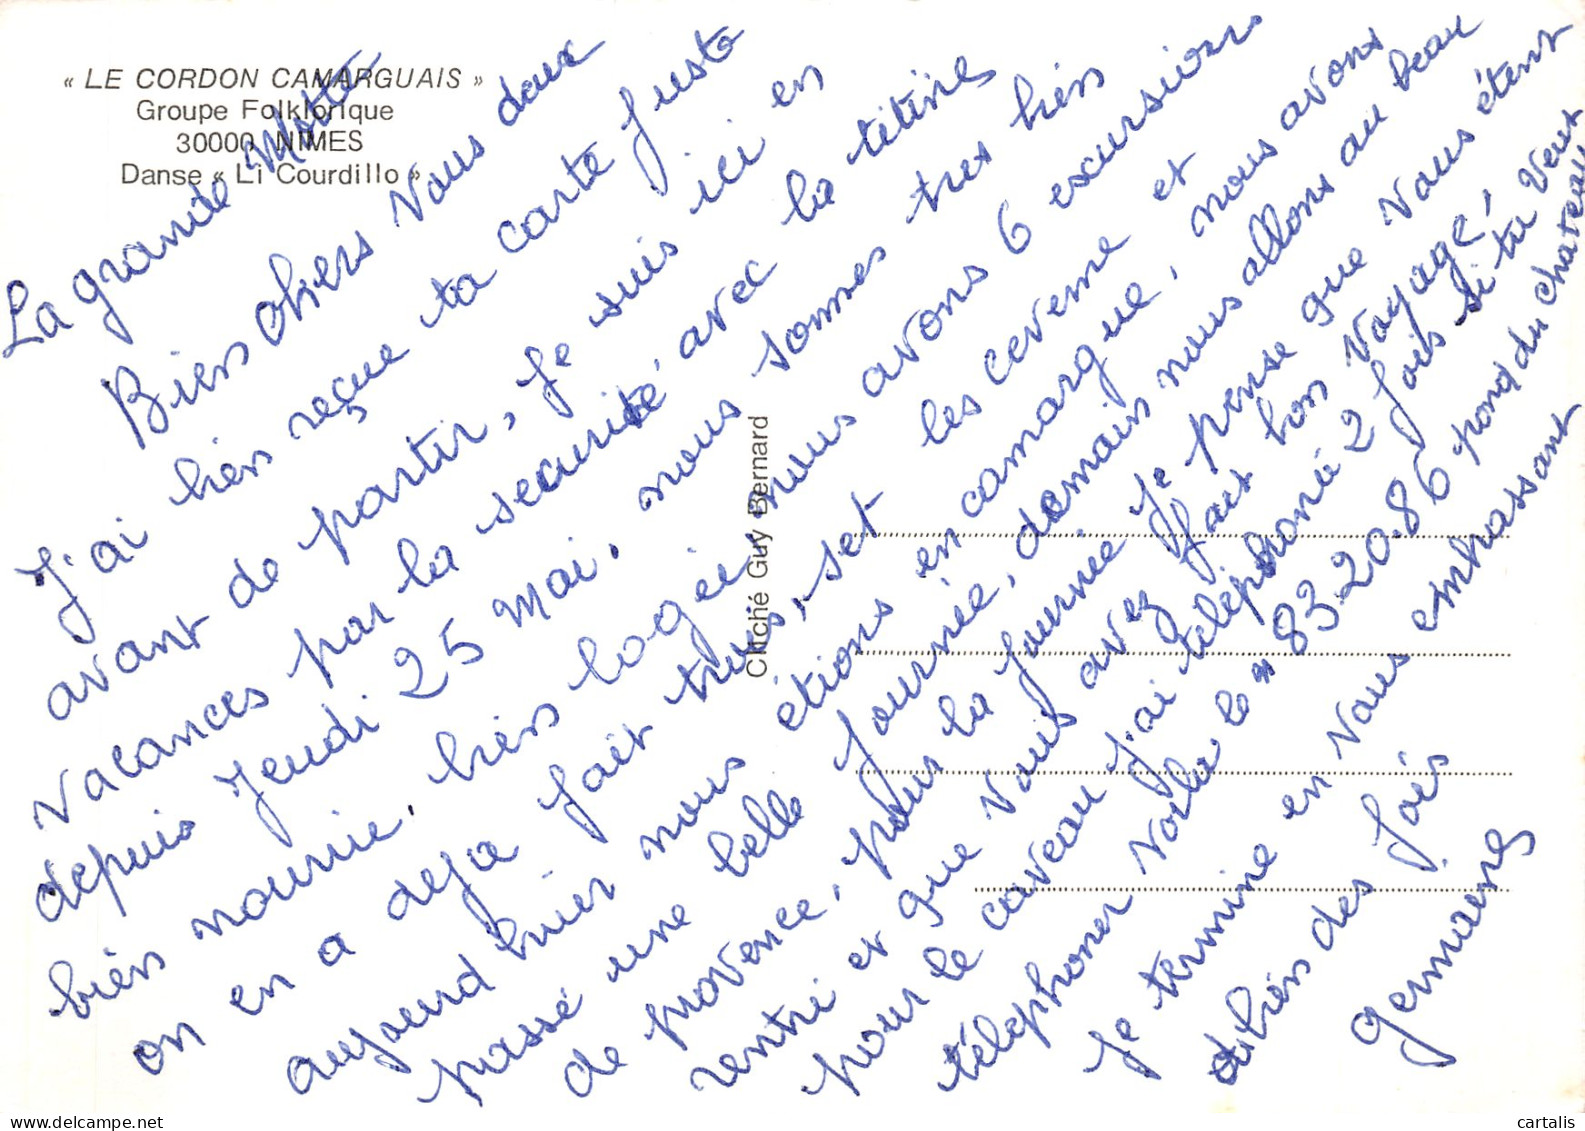 « LE CORDON CAMARGUAIS »
Groupe Folklorique
30000 NIMES
Danse « Li Courdillo »
Cliché Guy Bernard
La grande Motte
Biens Chers Vous deux
J'ai bien reçue ta carte juste
avant de partir, je suis ici en
vacances par la securité, avec la tetines
depuis Jeudi 25 mai, nous sommes tres bien
bien nourrie, bien logée, nous avons 6 excursions
on en a deja fait trois, set les cevenne et
aujourd huier nous étions en camargue, nous avons
passé une belle journée, demain nous allons au beau
de provence, pour la journée Je pense que Vous étent
rentri et que Vous avez fait bon Voyage,
pour le caveau j'ai téléphonié 2 fois si tu Veux
téléphoner Voila le n° 83.20.86 pond du chateau
Je termine en Vous embrassant
bien des fois
Germaines
cartalis